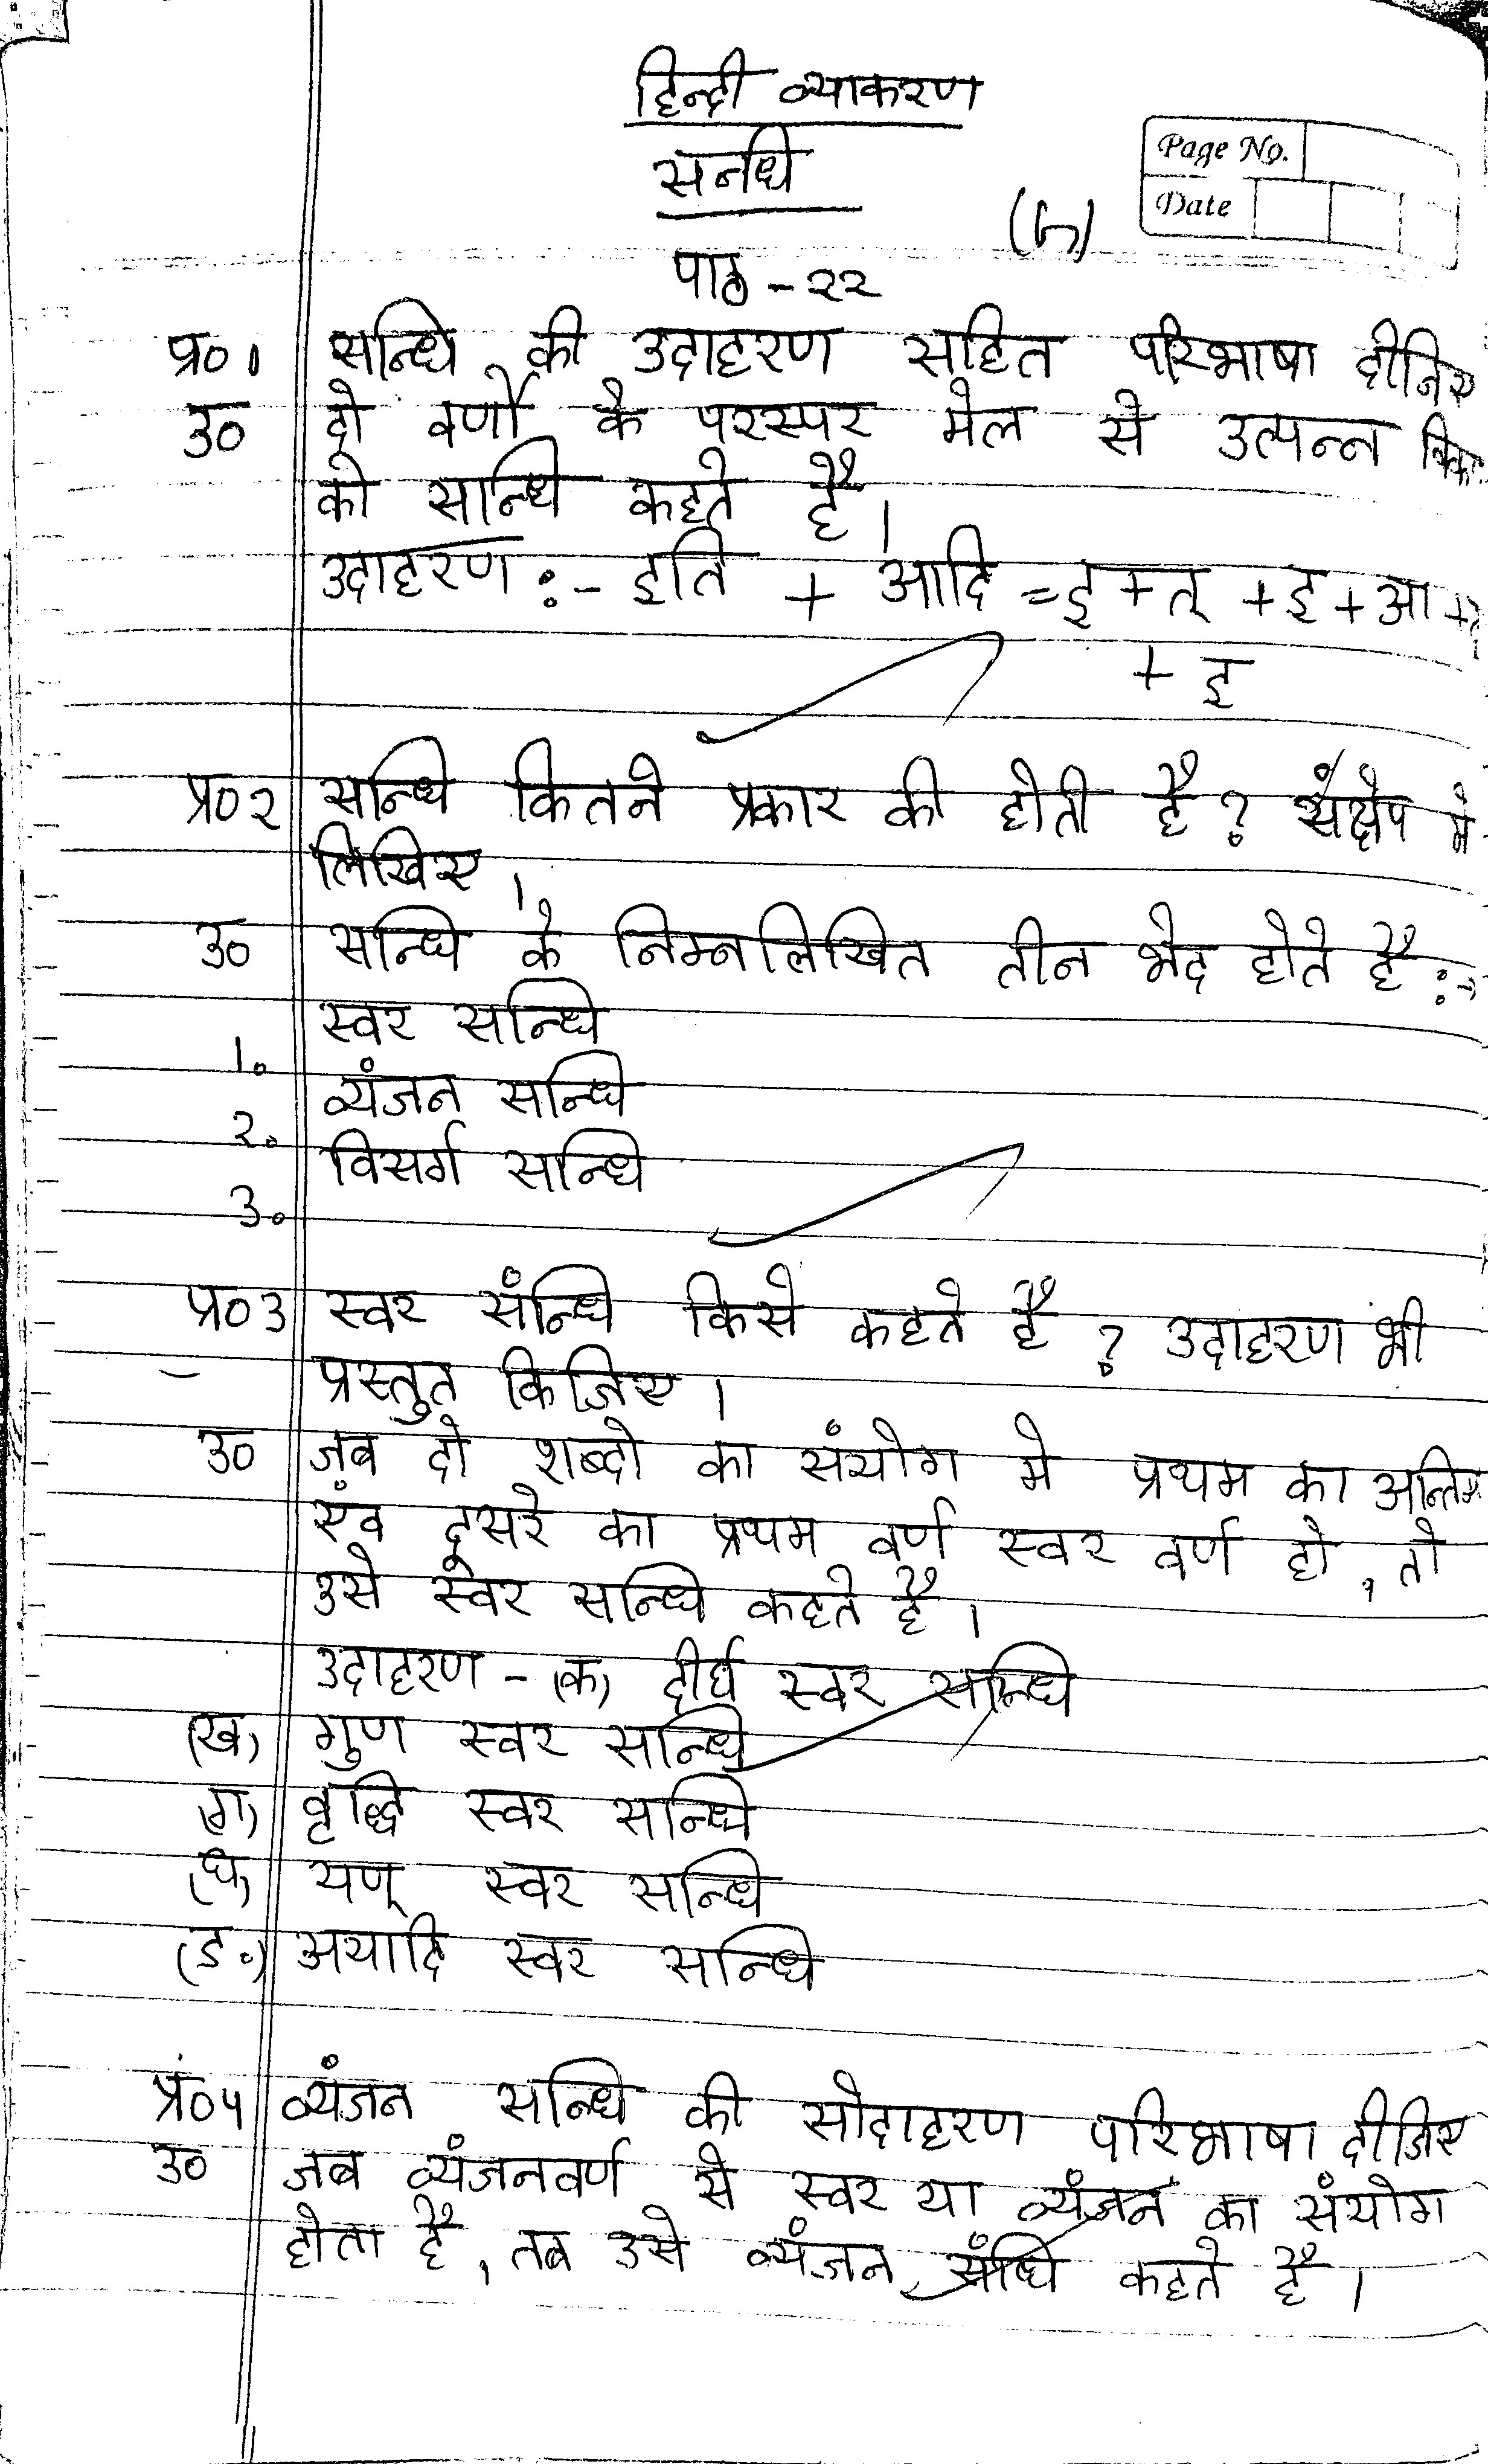 हिन्दी व्याकरण
सन्धि
Page No.
Date
पाठ - २२
प्र० १ सन्धि की उदाहरण सहित परिभाषा दीजिए
उ० दो वर्णों के परस्पर मेल से उत्पन्न
को सन्धि कहते है।
उदाहरण :- इति + आदि = इ + त् + इ + आ +
+ इ
प्र० २ सन्धि कितने प्रकार की होती है ? संक्षेप मे
लिखिए ।
उ० सन्धि के निम्नलिखित तीन भेद होते है :-
1. स्वर सन्धि
२. व्यंजन सन्धि
3. विसर्ग सन्धि
प्र० 3 स्वर संन्धि किसे कहते है ? उदाहरण भी
प्रस्तुत किजिए ।
उ० जब दो शब्दो का संयोग मे प्रथम का अन्तिम
एंव दूसरे का प्रथम वर्ण स्वर वर्ण हो , तो
उसे स्वर सन्धि कहते है ।
उदाहरण - (क) दीर्घ स्वर सन्धि
(ख) गुण स्वर सन्धि
(ग) वृद्धि स्वर सन्धि
(घ) यण् स्वर सन्धि
(ड.) अयादि स्वर सन्धि
प्रं० ५ व्यंजन सन्धि की सोदाहरण परिभाषा दीजिए
उ० जब व्यंजनवर्ण से स्वर या व्यंजन का संयोग
होता है , तब उसे व्यंजन संधि कहते है ।